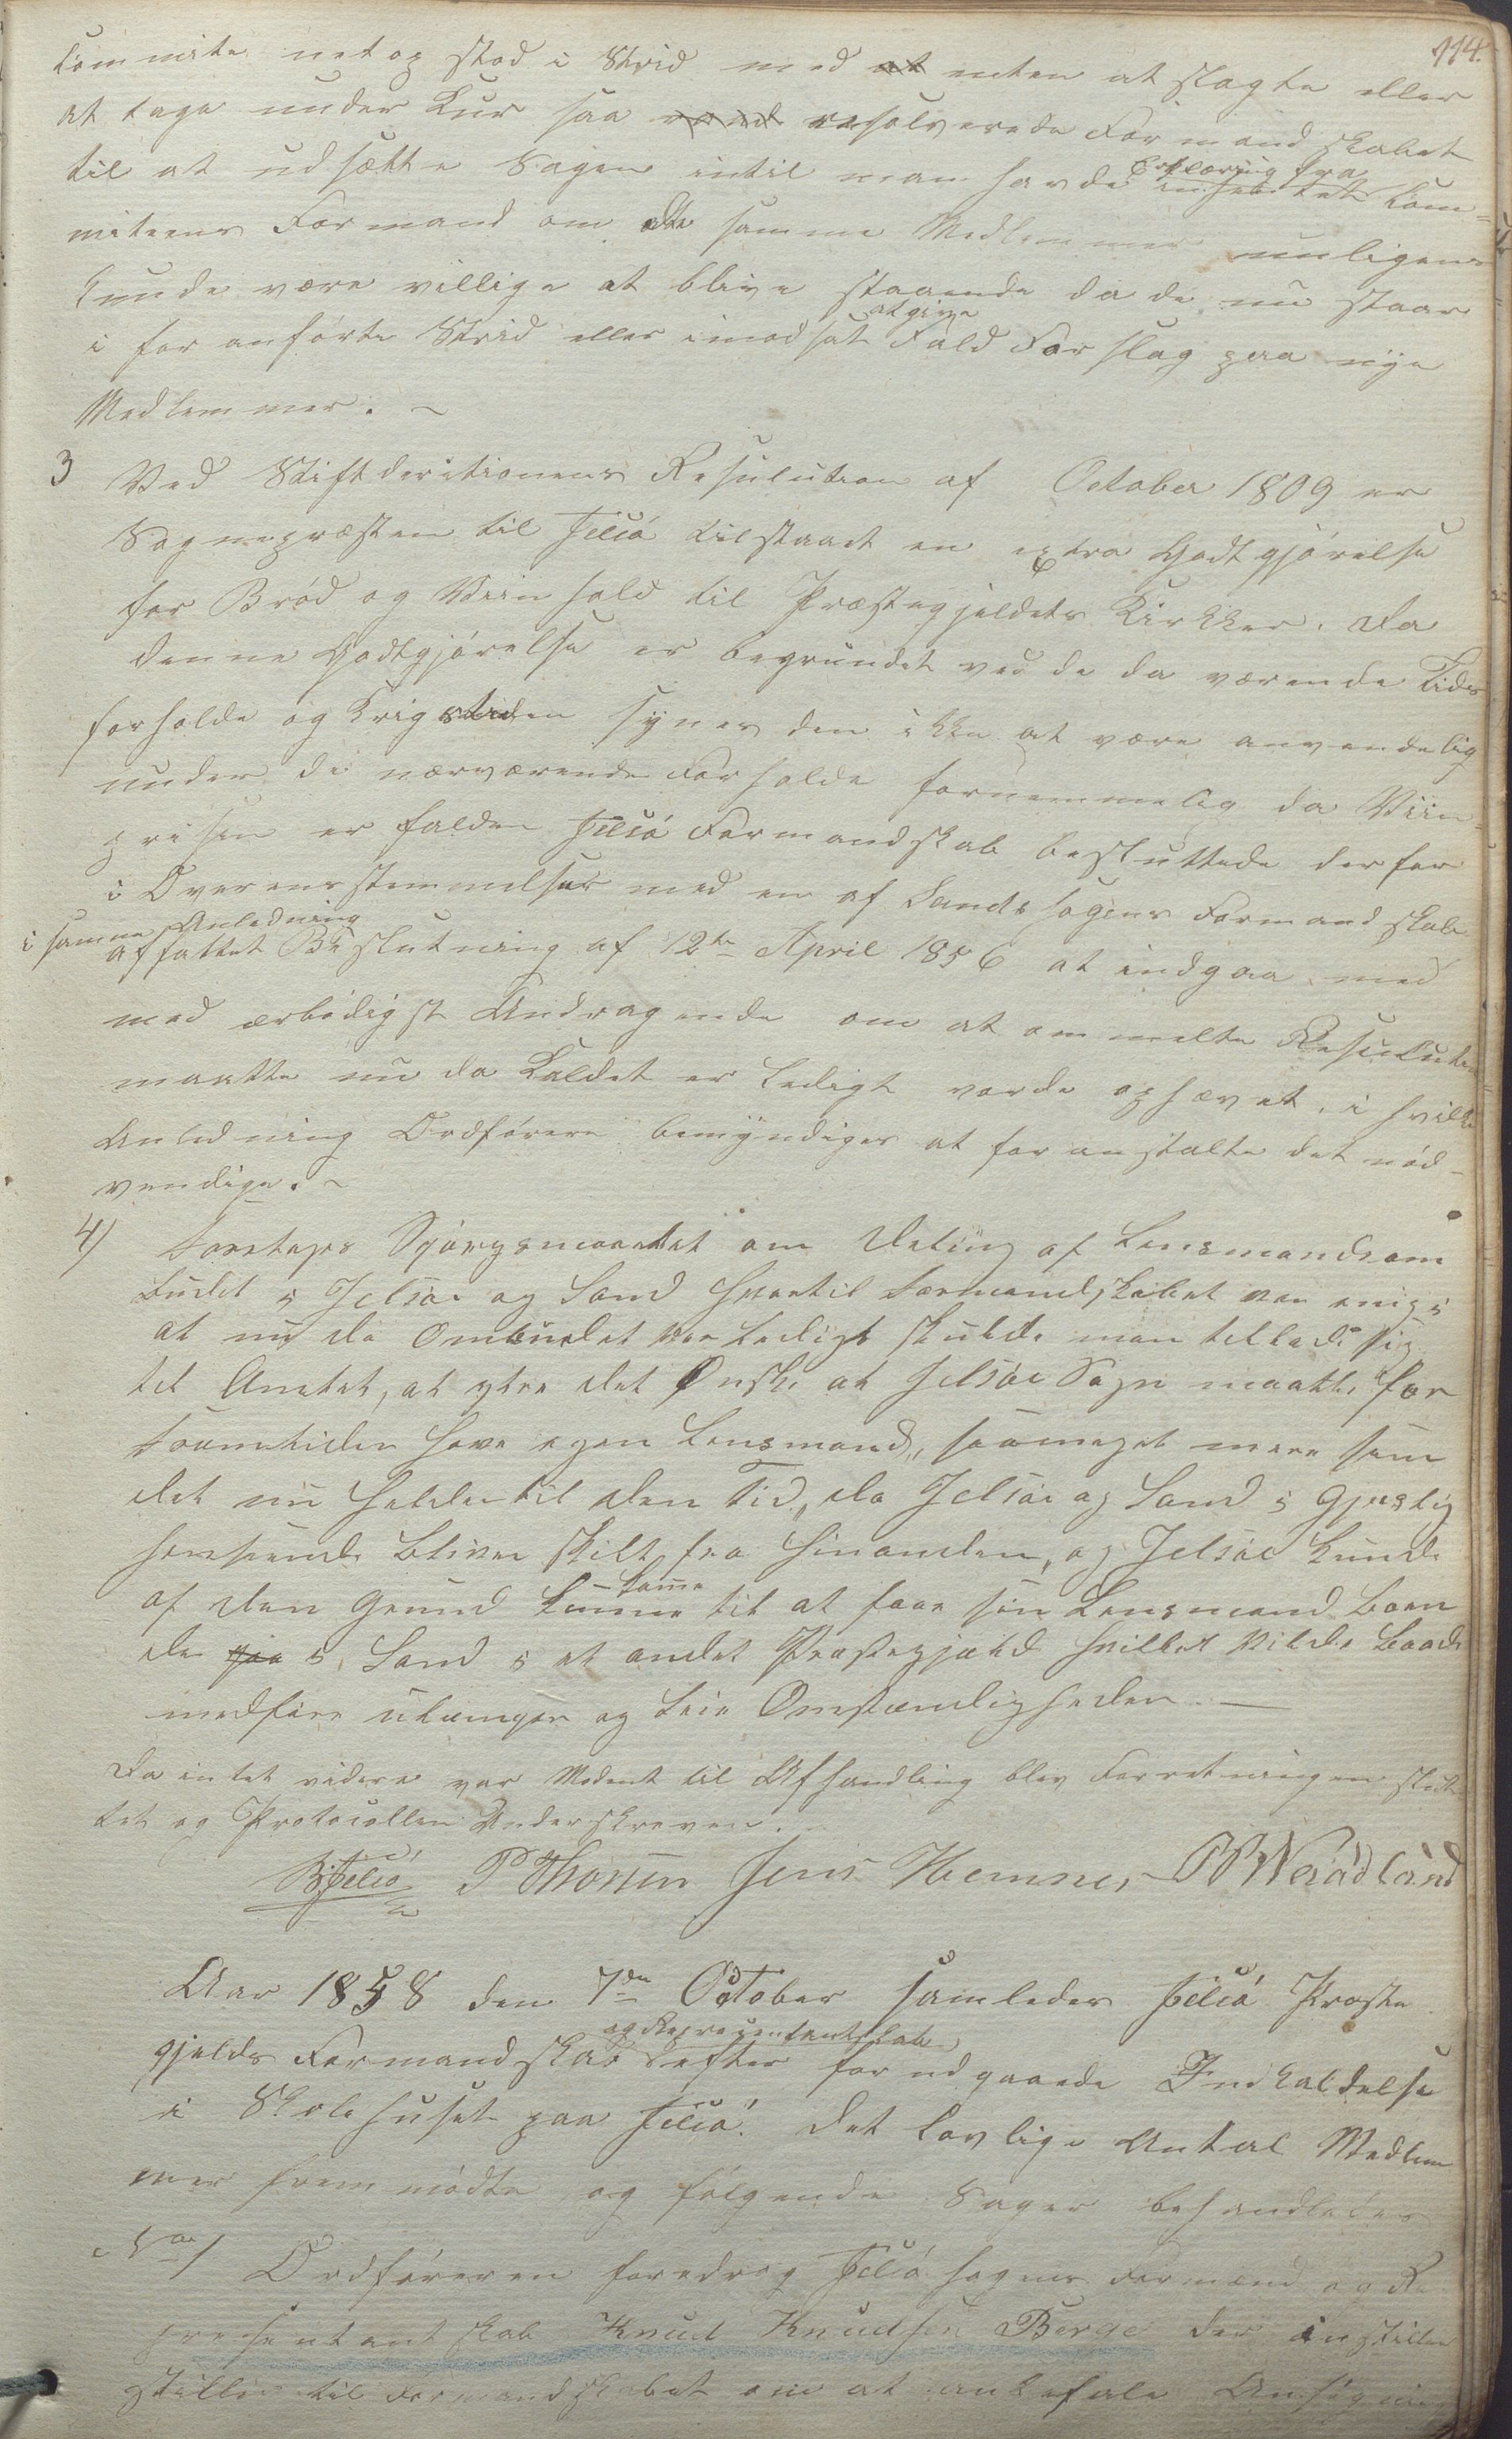 114.
Commite netop stod i Strid med at enten at slagte eller
at tage under Kur saa resolverede Formandskabet
til at udsætte Sagen intil man havde Erklæring fra Com=
miteens Formand om de samme Medlemmer muligens
kunde være villige at blive staaende da de nu staar
i for anførte Strid eller imodsat Fald at give Forslag paa nye
Medlemmer. ~
3 Ved Stiftderitionens Resulution af October 1809 er
Sognepræsten til Jelsø tilstaaet en extra Godtgjørelse
for Brød og Viin hold til Præstegjeldets Kirkker. Da
denne Godtgjørelse er begrundet ved de da værende Tids
forholde og Krigstiden synes den ikke at være anvendelig
under de nærværende Forholde fornemmelig da Viin
prisen er falden Jelsø Formandskab besluttede derfor
i Overensstemmelse med en af Sands Sogens Formandskab
i samme Anledning
affattet Beslutning af 12te April 1856 at indgaa med
med ærbødigst Andragende om at ommelte Resulution
maatte nu da Kaldet er ledigt vorde ophævet, i hvilke
Anledning Ordføreren bemyndiges at foranstalte det nød-
vendige. ~
4) Foretoges Spørgsmaalet om Deling af Lensmandsom
budet i Jelsøe og Sand hvortil Formandskabet var enig i
at nu da Ombudet var ledigt skulde man tillade sig
til Amtet, at ytre det Ønske at Jelsøe Sogn maatte for
Fremtiden have egen Lensmand, saameget mere som
det nu helder til den Tid, da Jelsøe og Sand i Gjestlig
henseende bliver skilt fra hinanden, og Jelsøe kunde
af den Grund komme til at faae sin Lensmand boen
de i Sand i et andet Præstegjæld hvilket vilde baade
medføre ulæmper og leie Omstændigheder. —
Da intet videre var Modent til Afhandling blev Forretningen slut
tet og Protocollen Underskreven.
B Jelsø P Thorsen Jens Hemnes PP Weradland
Aar 1858 den 7de October samledes Jelsø Præste
gjelds Formandskab og Representantskab efter forudgaaede Indkaldelse
i Skolehuset paa Jelsø. Det lovlige Antal Medlem
mer fremmødte og følgende Sager behandledes
No 1 Ordføreren foredrog Jelsø Sogns Formænd og Re
presentantskab Knud Knudsen Berge der
stiller til Formandskabet om at anbefale Ansøgning